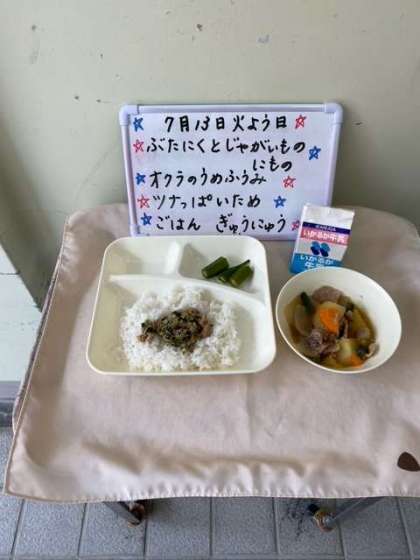 7月13日火よう日
ぶたにくとじゃがいもの
にもの
オクラのうめふうみ
ツナっぱいため
ごはん ぎゅうにゅう
いかるが牛乳
いかるが
牛乳